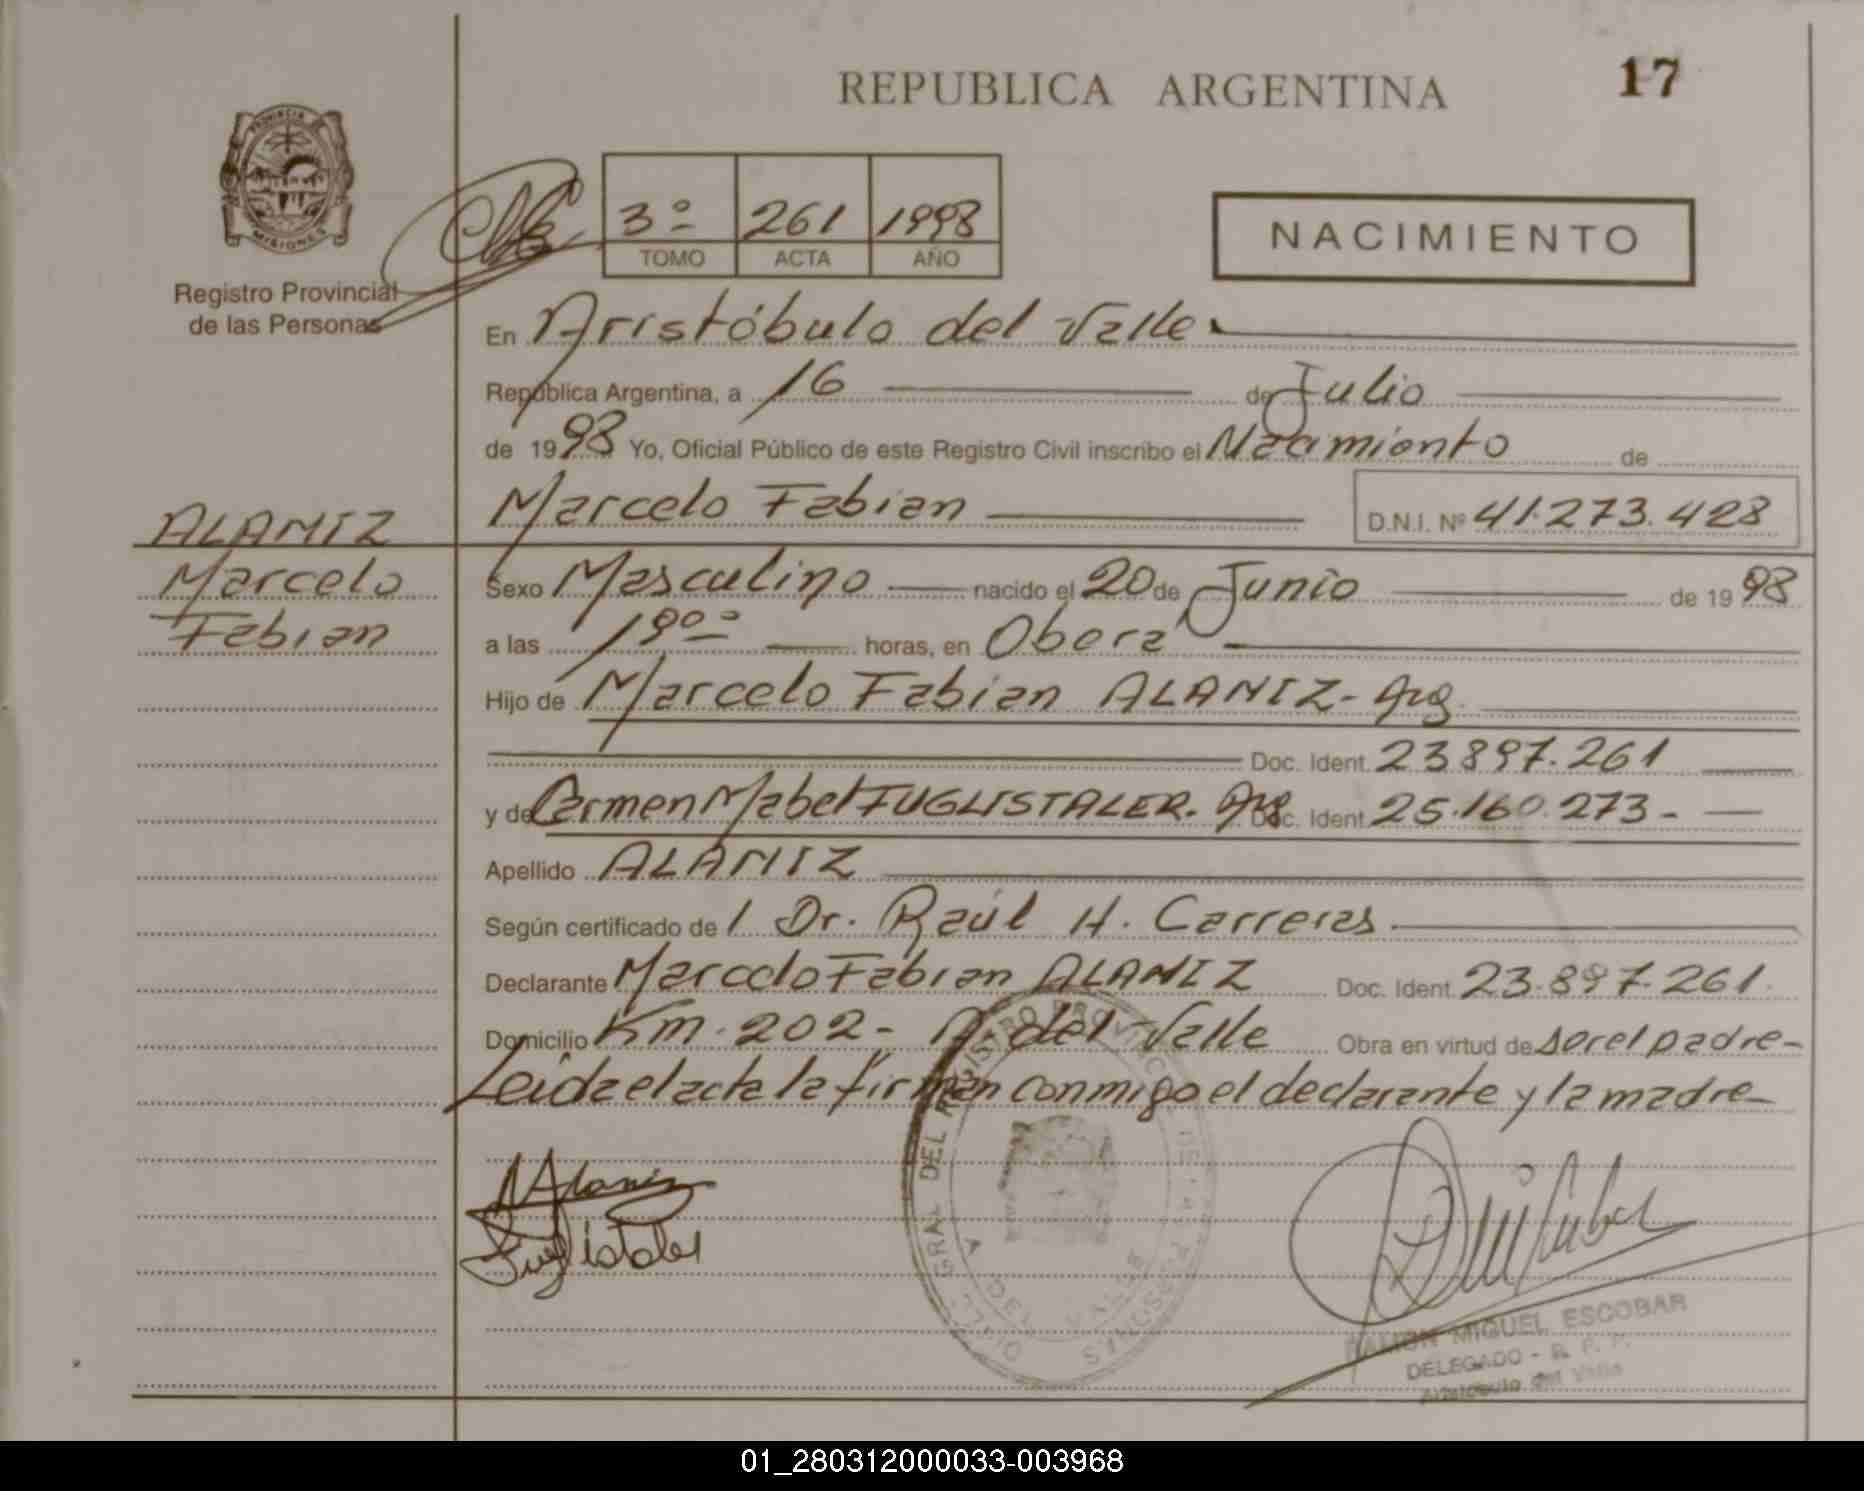 REPUBLICA ARGENTINA
17
PROVINCIA
MISIONES
Registro Provincial
de las Personas
3º 261 1998
TOMO ACTA AÑO
NACIMIENTO
En Aristóbulo del Valle
República Argentina, a 16 de Julio
de 1998 Yo, Oficial Público de este Registro Civil inscribo el Nacimiento de
Marcelo Fabian D.N.I. Nº 41.273.428
ALANIZ
Marcelo
Fabian
Sexo Masculino nacido el 20 de Junio de 1998
a las 19ºº horas, en Obera
Hijo de Marcelo Fabian ALANIZ - Arg.
Doc. Ident. 23897.261
y de Carmen Mabel FUGLISTALER. Arg Doc. Ident. 25.160.273-
Apellido ALANIZ
Según certificado de l Dr. Raúl H. Carreras.
Declarante Marcelo Fabian ALANIZ Doc. Ident. 23.897.261.
Domicilio Km. 202- A. del Valle Obra en virtud de ser el padre-
Leida el acta la firman conmigo el declarante y la madre-
MAlaniz
Fuglistaler
GRAL DEL REGISTRO PROVINCIAL DE LAS PERSONAS
A DEL VALLE
RAMON MIGUEL ESCOBAR
DELEGADO - R. P. P.
Aristóbulo del Valle
01_280312000033-003968